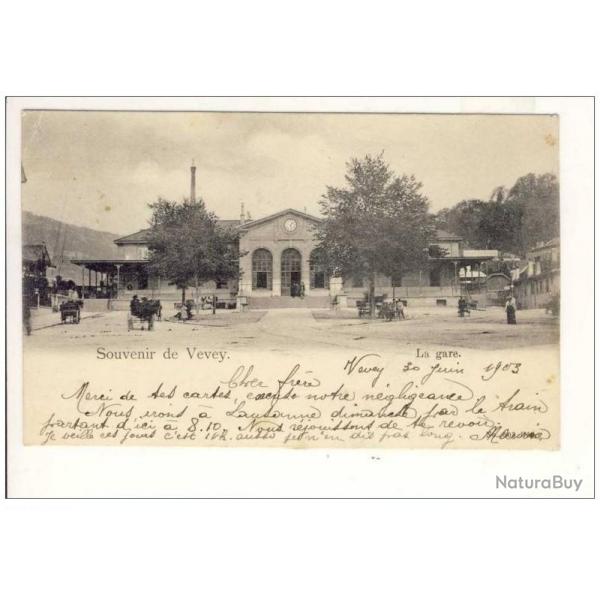 Souvenir de Vevey.
La gare.
Vevey 30 Juin 1903
Cher frère
Merci de tes cartes, excuse notre négligeance
Nous irons à Lausanne dimanche par le train
partant d'ici à 8.10. Nous réjouissons de te revoir.
Je veille ces jours c'est 1 h. aussi je n'en dis pas long.
NaturaBuy